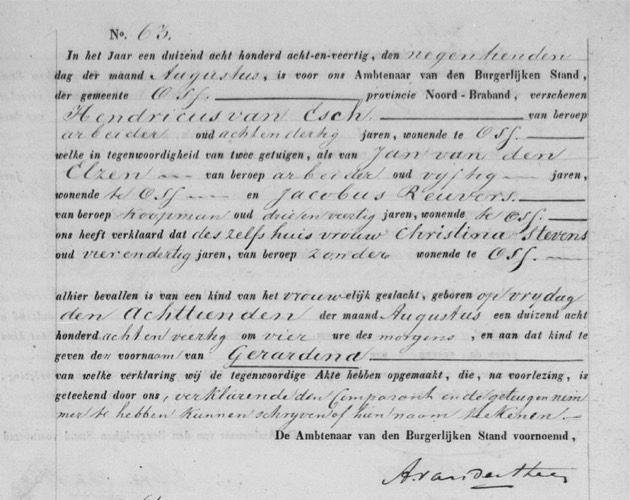 No. 63.
In het Jaar een duizend acht honderd acht-en-veertig, den negentienden
dag der maand Augustus, is voor ons Ambtenaar van den Burgerlijken Stand,
der gemeente Oss. provincie Noord-Braband, verschenen
Hendricus van Esch. van beroep
arbeider oud achtendertig jaren, wonende te Oss.
welke in tegenwoordigheid van twee getuigen, als van Jan van den
Elzen van beroep arbeider oud vyftig jaren,
wonende te Oss en Jacobus Reuvers.
van beroep koopman oud drieenveertig jaren, wonende te Oss.
ons heeft verklaard dat deszelfs huisvrouw Christina Stevens
oud vierendertig jaren, van beroep zonder wonende te Oss.
alhier bevallen is van een kind van het vrouwelijk geslacht, geboren op vrydag
den achttienden der maand Augustus een duizend acht
honderd acht en veertig om vier ure des morgens, en aan dat kind te
geven den voornaam van Gerardina
van welke verklaring wij de tegenwoordige Akte hebben opgemaakt, die, na voorlezing, is
geteekend door ons, verklarende den Comparant en de getuigen nim
mer te hebben kunnen schryven of hun naam teekenen.
De Ambtenaar van den Burgerlijken Stand voornoemd,